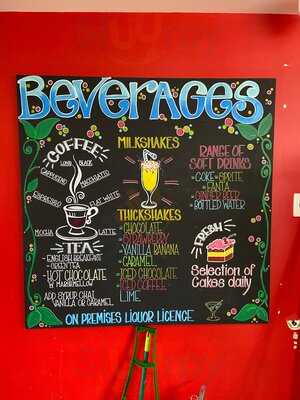 Beverages
COFFEE
LONG BLACK
CAPPUCCINO
MACCHIATO
ESPRESSO
FLAT WHITE
MOCHA
LATTE
TEA
- ENGLISH BREAKFAST
- GREEN TEA
- HOT CHOCOLATE
w MARSHMELLOW
ADD SYRUP CHAI,
VANILLA OR CARAMEL
MILKSHAKES
THICKSHAKES
CHOCOLATE
STRAWBERRY
VANILLA BANANA
CARAMEL
ICED CHOCOLATE
ICED COFFEE
LIME
RANGE OF
SOFT DRINKS
COKE SPRITE
FANTA
GINGER BEER
BOTTLED WATER
FRESH
Selection of
Cakes daily
ON PREMISES LIQUOR LICENCE